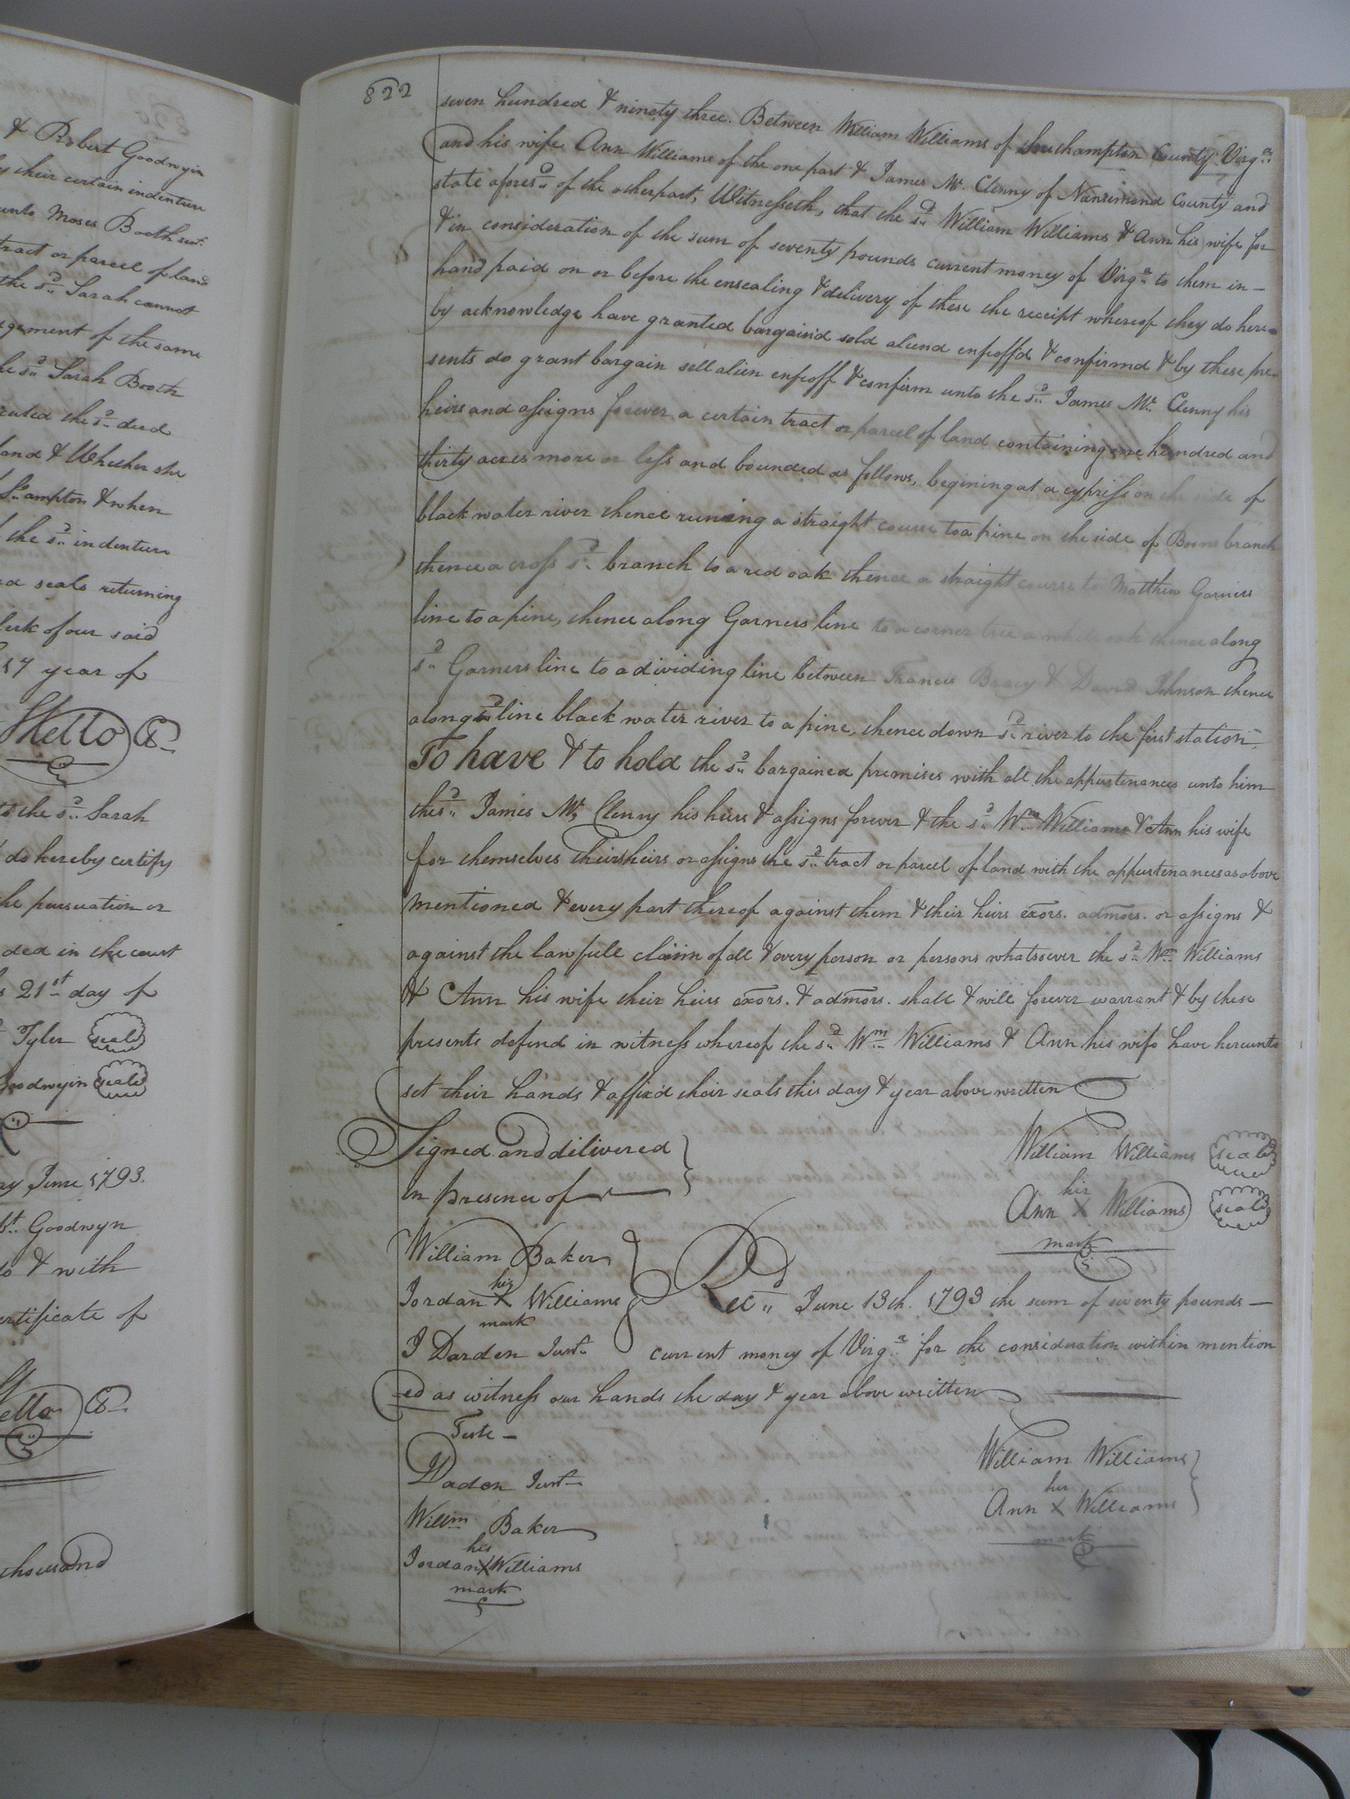 & Robert Goodwyn
their certain indenture
unto Moses Booth
tract or parcel of land
the sd. Sarah cannot
of the same
sd. Sarah Booth
the sd. deed
land & Whether she
& when
the sd. indenture
seals returning
of our said
17 year of
Kello
to the sd. Sarah
do hereby certify
the persuation or
in the court
21st day of
Tyler seal
Goodwyn seal
June 1793.
Goodwyn
& with
certificate of
thousand
822
seven hundred & ninety three. Between William Williams of Southampton County Virga.
and his wife Ann Williams of the one part & James Mc. Clenny of Nansimond County and
state aforesd. of the other part, Witnesseth, that the sd. William Williams & Ann his wife for
& in consideration of the sum of seventy pounds current money of Virga. to them in –
hand paid on or before the ensealing & delivery of these the receipt whereof they do here=
by acknowledge have granted bargain'd sold aliend enfeoffd & confirmd & by these pre=
sents do grant bargain sell alien enfeoff & confirm unto the sd. James Mc. Clenny his
heirs and assigns forever a certain tract or parcel of land containing one hundred and
thirty acres more or less and bounded as follows, begining at a cypriss on the side of
black water river thence runing a straight course to a pine on the side of Boons branch
thence a cross sd. branch to a red oak thence a straight course to Matthew Garners
line to a pine, thence along Garners line to a corner tree a white oak thence along
sd. Garners line to a dividing line between Francis Bracy & David Johnson thence
along sd. line black water river to a pine, thence down sd. river to the first station.
To have & to hold the sd. bargained premises with all the appurtenances unto him
the sd. James Mc. Clenny his heirs & assigns forever & the sd. Wm. Williams & Ann his wife
for themselves their heirs or assigns the sd. tract or parcel of land with the appurtenances as above
mentioned & every part thereof against them & their heirs exors. admors. or assigns &
against the lawfull claim of all & every person or persons whatsoever the sd. Wm. Williams
& Ann his wife their heirs exors. & admors. shall & will forever warrant & by these
presents defend in witness whereof the sd. Wm. Williams & Ann his wife have hereunto
set their hands & affixd their seals this day & year above written
Signed and delivered
in presence of
William Williams seal
her
Ann X Williams seal
mark
William Baker
his
Jordan X Williams
mark
J Darden Junr.
Recd. June 13th. 1793 the sum of seventy pounds –
current money of Virga. for the consideration within mention
ed as witness our hands the day & year above written
Teste –
J Daden Junr.
Willm. Baker
his
Jordan X Williams
mark
William Williams
her
Ann X Williams
mark